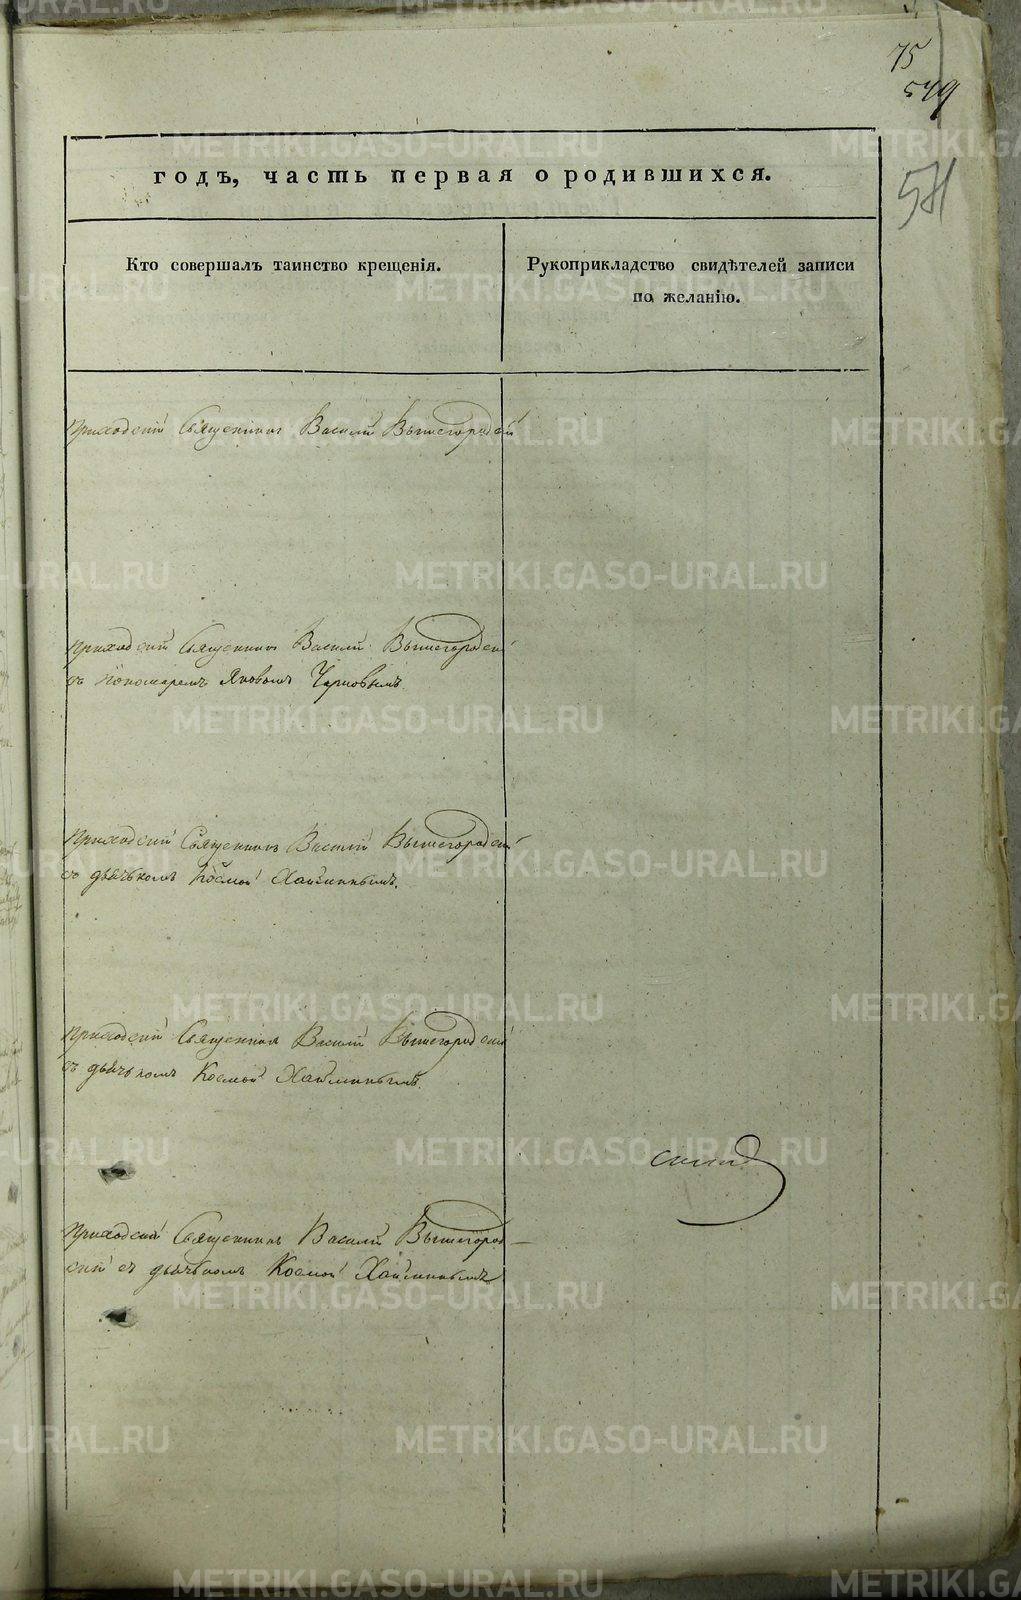 75
549
571
годъ, часть первая о родившихся.
Кто совершалъ таинство крещенія.
Рукоприкладство свидѣтелей записи
по желанію.
Приходскій Священникъ Василій Вышегородскій
Приходскій Священникъ Василій Вышегородскій
съ пономаремъ Яковомъ Черновымъ
Приходскій Священникъ Василій Вышегородскій
съ дьячькомъ Космой Хайминымъ.
Приходскій Священникъ Василій Вышегородскій
съ дьячькомъ Космой Хайминымъ.
Приходскій Священникъ Василій Вышегород-
скій съ дьячькомъ Космой Хайминымъ
METRIKI.GASO-URAL.RU